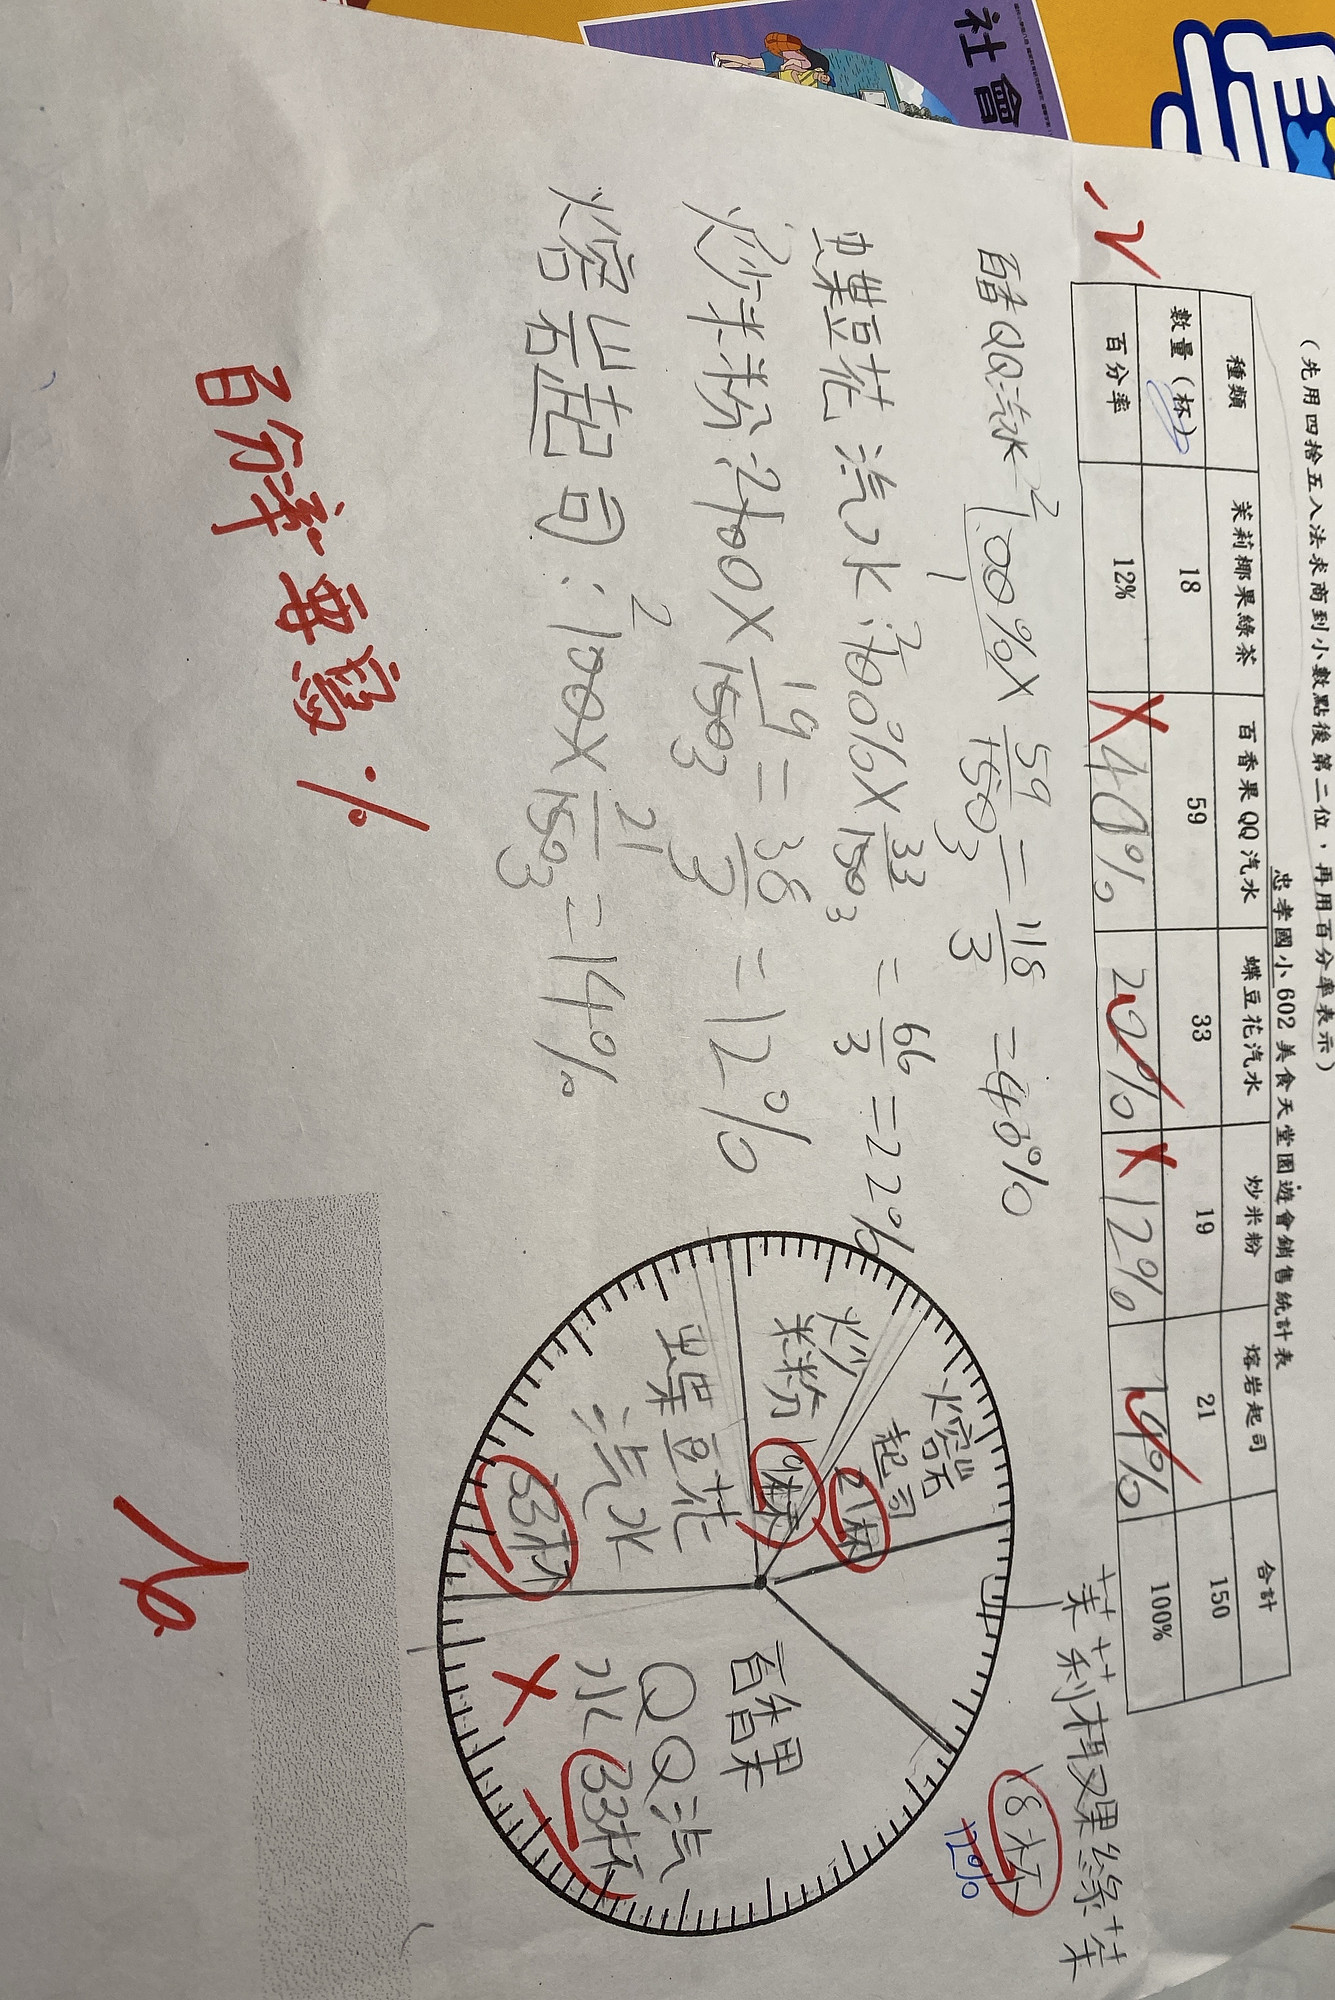 社會
(先用四捨五入法求商到小數點後第二位，再用百分率表示)
忠孝國小602美食天堂園遊會銷售統計表
種類 茉莉椰果綠茶 百香果QQ汽水 蝶豆花汽水 炒米粉 熔岩起司 合計
數量(杯) 18 59 33 19 21 150
百分率 12% 40% 20% 12% 14% 100%
百香QQ汽水 100%× 59/150 = 118/3 = 40%
蝶豆花汽水:100%× 33/150 = 66/3 = 22%
炒米粉:100× 19/150 = 38/3 = 12%
熔岩起司:100× 21/150 = 14%
百分率要寫%
熔岩起司 21杯
炒米粉 19杯
蝶豆花汽水 33杯
百香果QQ汽水 33杯
18杯
12%